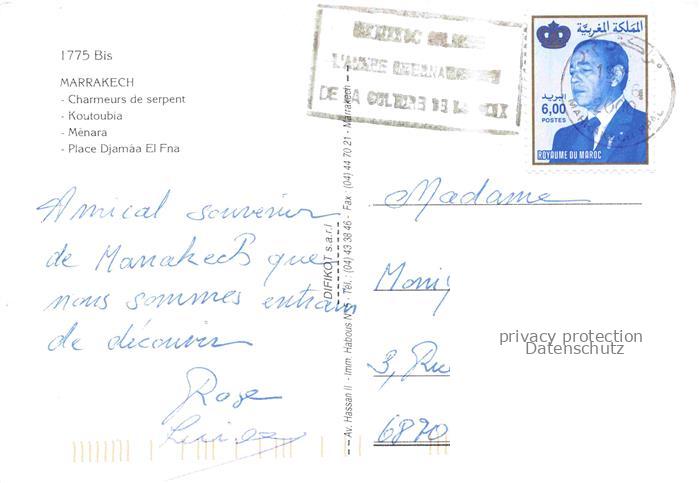 1775 Bis
MARRAKECH
- Charmeurs de serpent
- Koutoubia
- Ménara
- Place Djamâa El Fna
L'ANNEE INTERNATIONALE
DE LA CULTURE DE LA PAIX
المملكة المغربية
البريد
6,00
POSTES
ROYAUME DU MAROC
Amical souvenir
de Marrakech que
nous sommes entrain
de découvrir
Rose
DIFIKOT s.a.r.l
Av. Hassan II - Imm. Habous N° 5 - Tél.: (04) 43 38 46 - Fax: (04) 44 70 21 - Marrakech
Madame
Moni
3, Rue
6820
privacy protection
Datenschutz